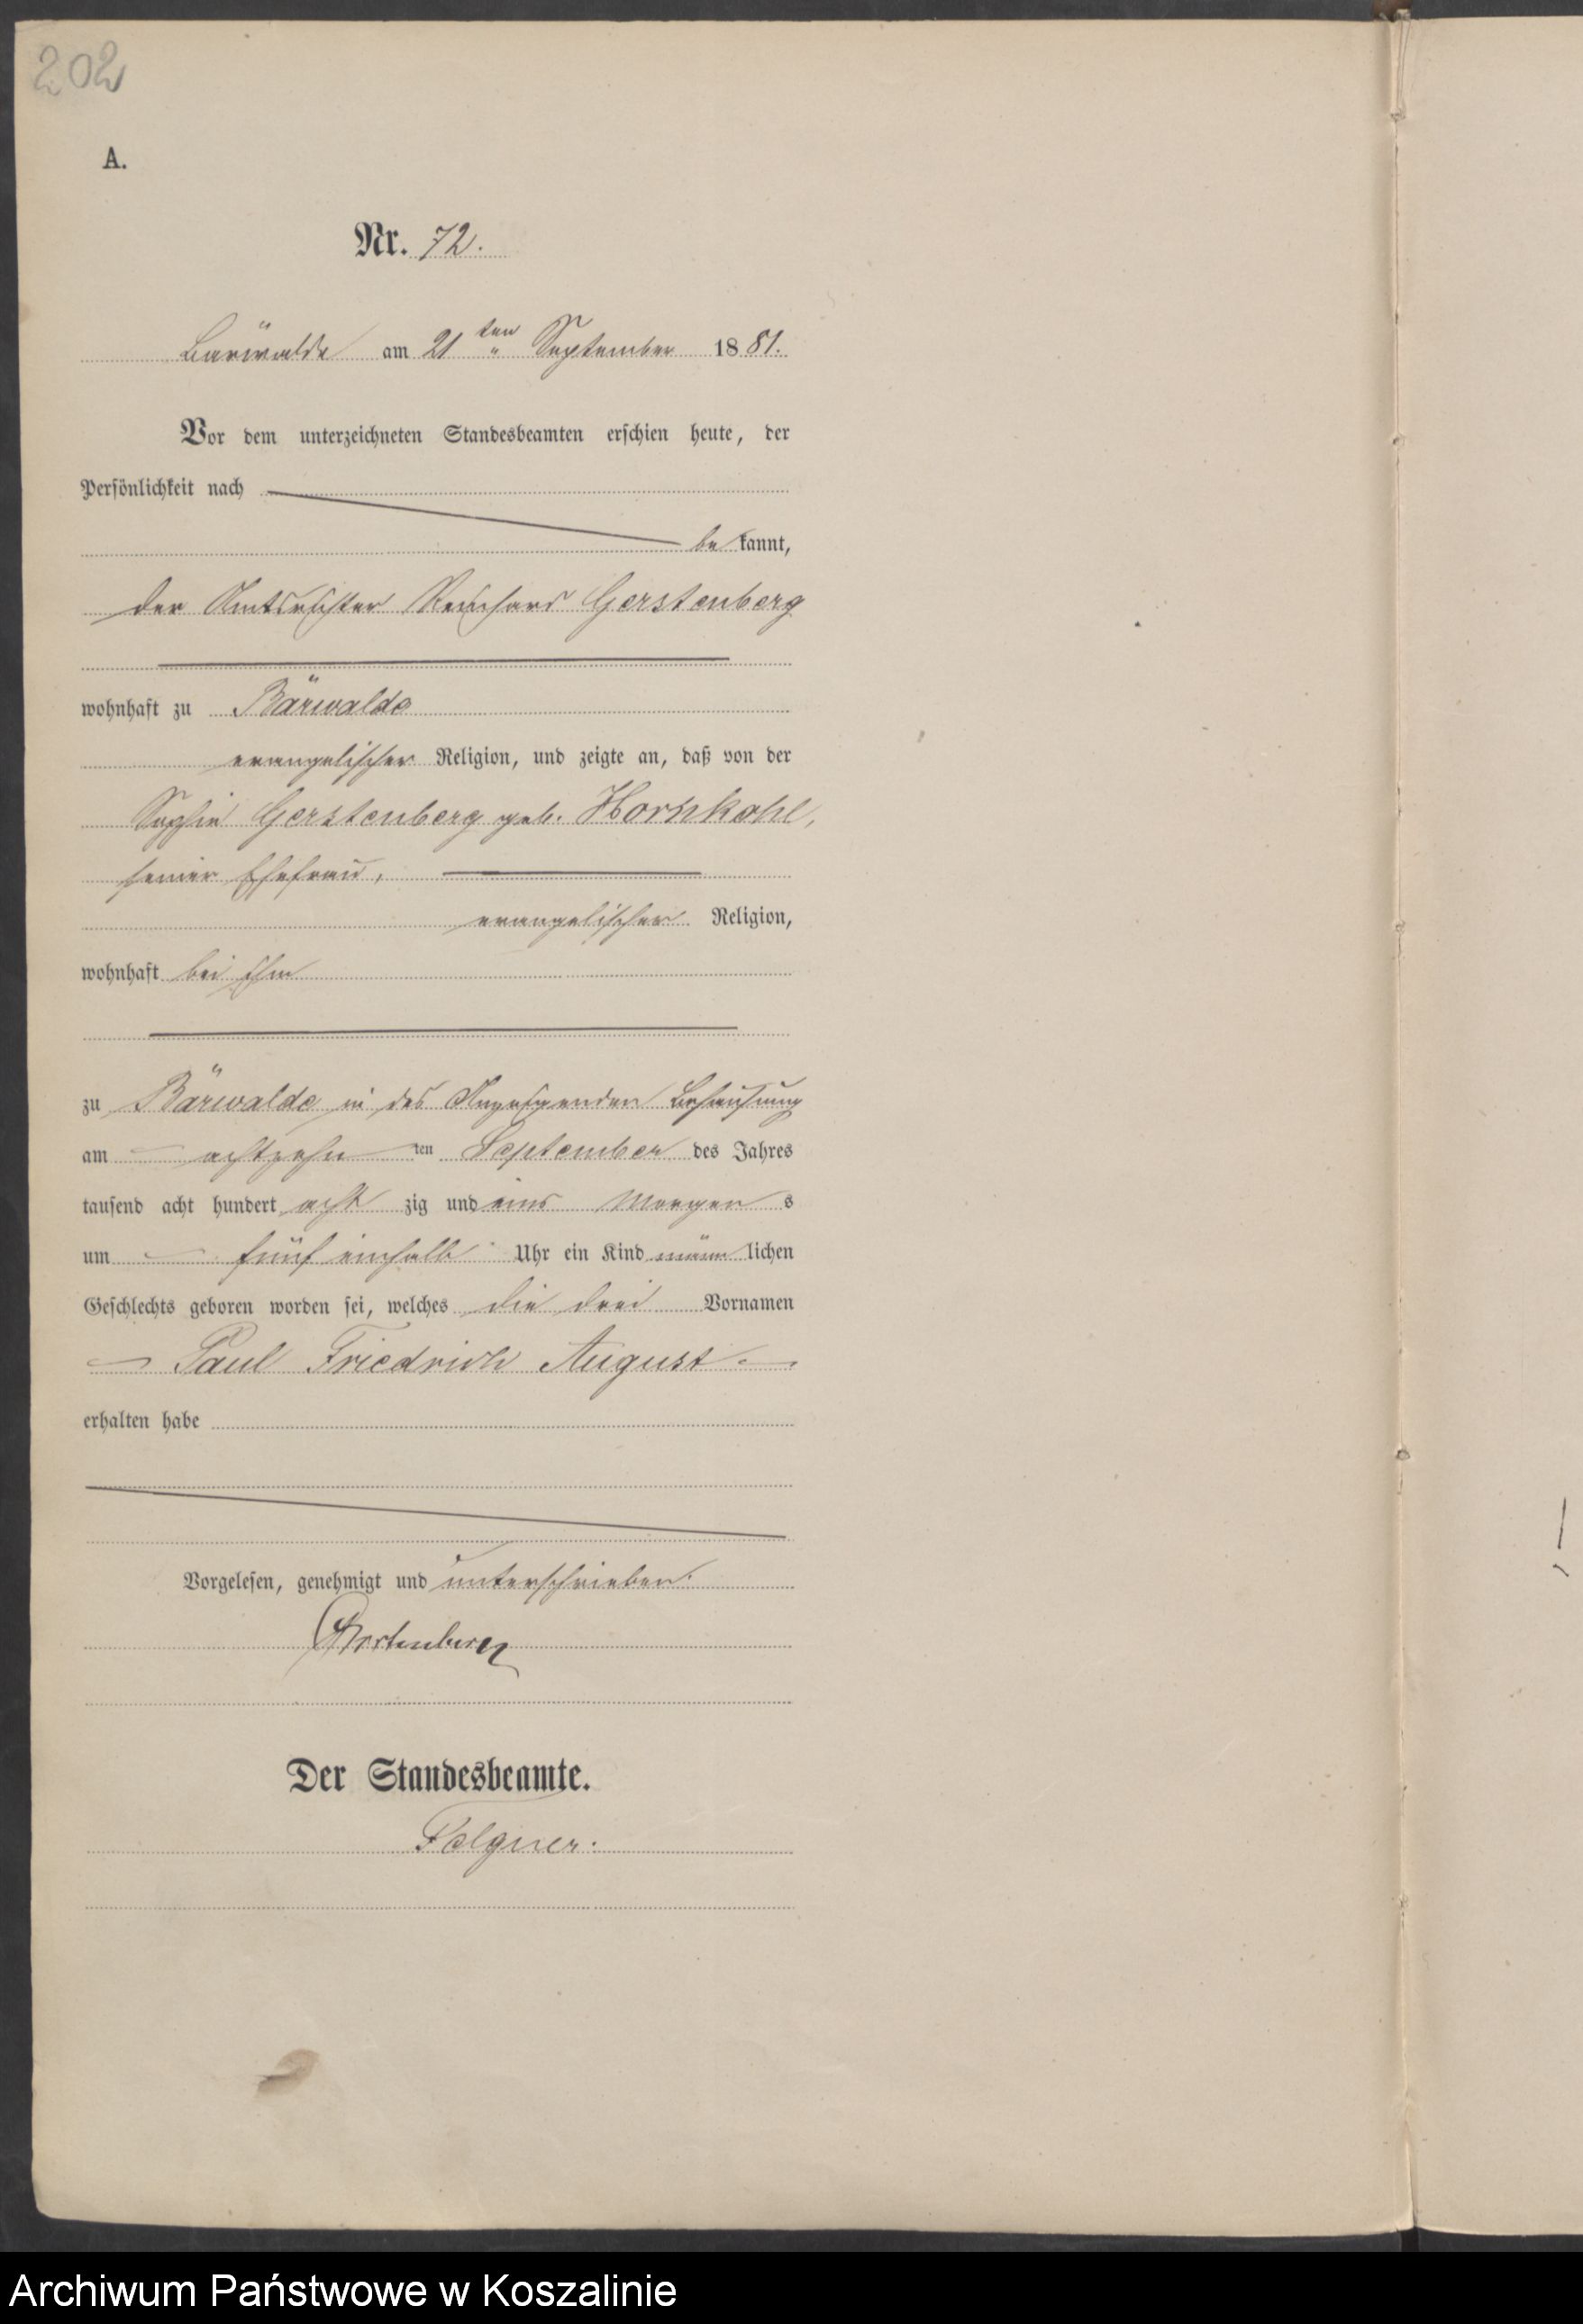 202
A.
Nr. 72.
Bärwalde am 21ten September 1881.
Vor dem unterzeichneten Standesbeamten erschien heute, der
Persönlichkeit nach
be kannt,
der Amtsrichter Gerstenberg
wohnhaft zu Bärwalde
evangelischer Religion, und zeigte an, daß von der
Sophie Gerstenberg geb. Hornkohl,
seiner Ehefrau,
evangelischer Religion,
wohnhaft bei ihm
zu Bärwalde in des Anzeigenden Behausung
am achtzehn ten September des Jahres
tausend acht hundert acht zig und eins Morgen s
um fünf einhalb Uhr ein Kind männ lichen
Geschlechts geboren worden sei, welches die drei Vornamen
Paul Friedrich August
erhalten habe
Vorgelesen, genehmigt und unterschrieben.
Gerstenberg
Der Standesbeamte.
Folgner.
Archiwum Państwowe w Koszalinie